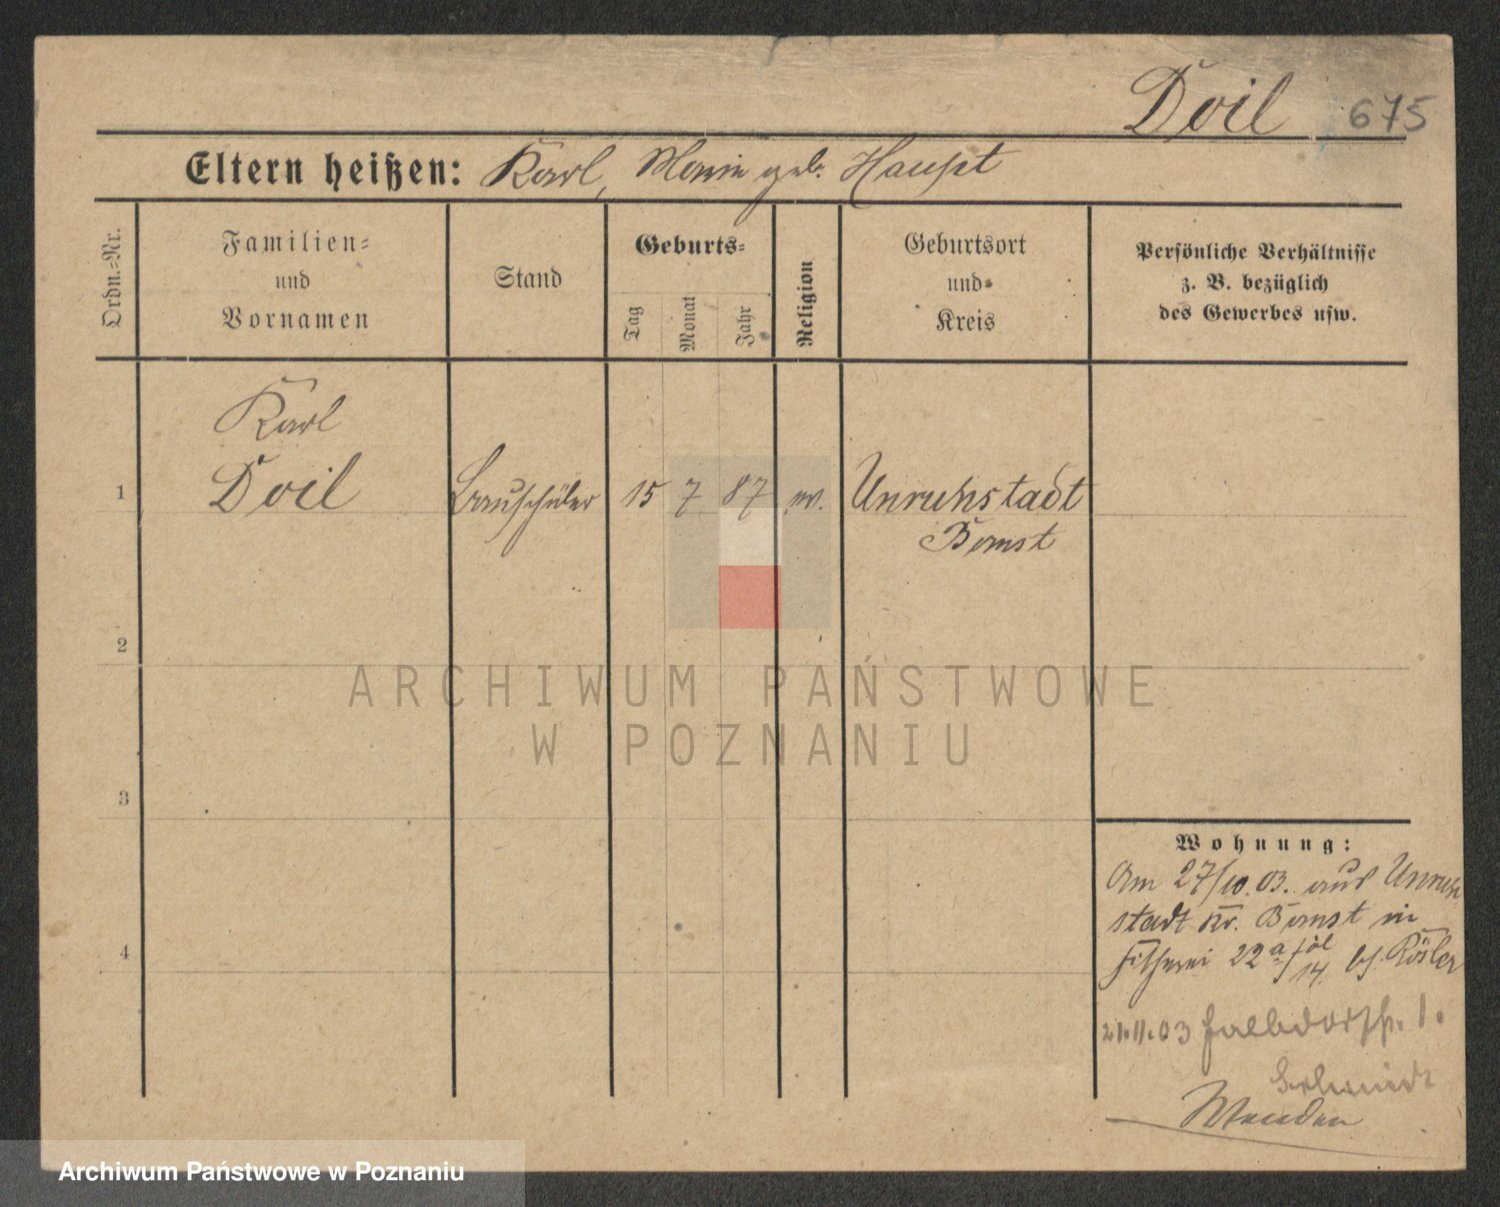 Doil 675
Eltern heißen: Karl, Marie geb. Haupt
Ordn.=Nr.
Familien=
und
Vornamen
Stand
Geburts=
Tag
Monat
Jahr
Religion
Geburtsort
und
Kreis
Persönliche Verhältnisse
z. B. bezüglich
des Gewerbes usw.
Karl
1 Doil Bauschüler 15 7 87 ev. Unruhstadt
Bomst
2
ARCHIWUM PAŃSTWOWE
W POZNANIU
3
4
Wohnung:
Am 27/10.03. aus Unruh
stadt Kr. Bomst in
22a 14 bei Rösler
21.11.03 1.
Schmidt
Wenden
Archiwum Państwowe w Poznaniu